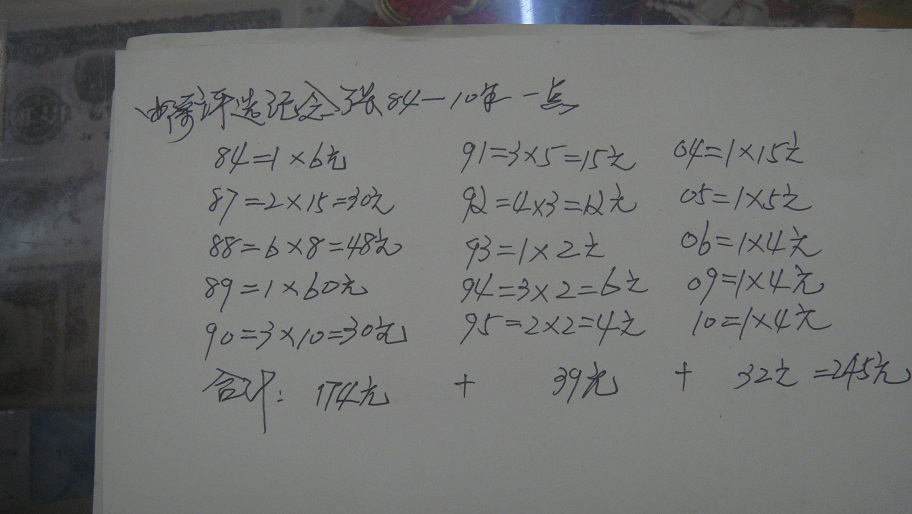 邮票评选纪念张84—10年一点
84=1×6元 91=3×5=15元 04=1×15元
87=2×15=30元 92=4×3=12元 05=1×5元
88=6×8=48元 93=1×2元 06=1×4元
89=1×60元 94=3×2=6元 09=1×4元
90=3×10=30元 95=2×2=4元 10=1×4元
合计:174元 + 39元 + 32元=245元